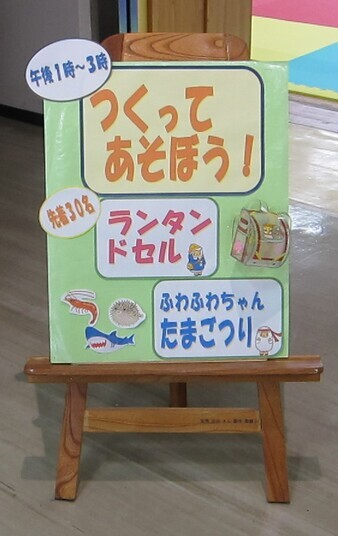 午後1時～3時
つくって
あそぼう!
先着30名
ランタン
ドセル
ふわふわちゃん
たまごつり